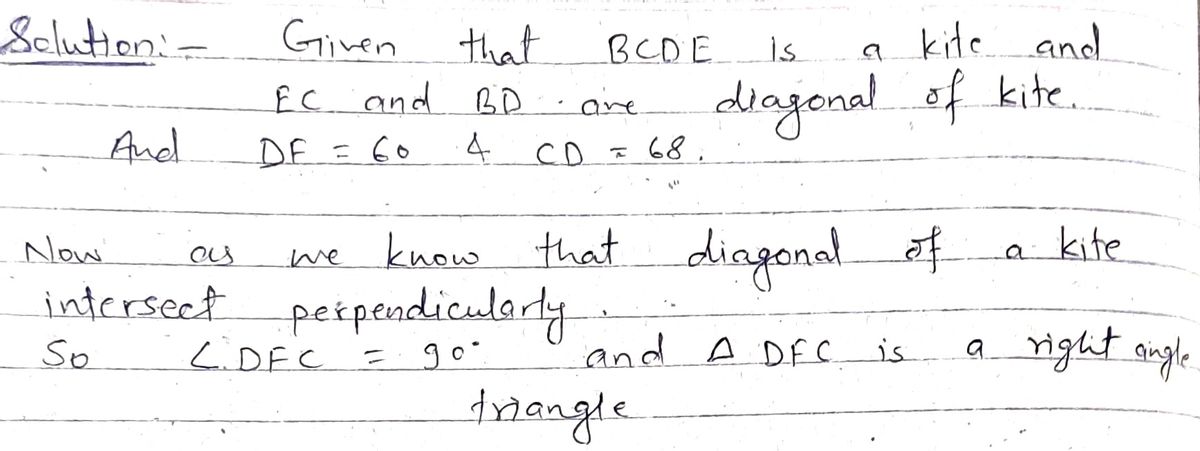 Solution:- Given that BCDE is a kite and
EC and BD are diagonal of kite.
And DF = 60 & CD = 68.
Now as we know that diagonal of a kite
intersect perpendicularly.
So ∠DFC = 90° and Δ DFC is a right angle
triangle